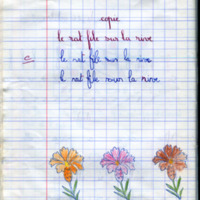 copie
le rat file sur la rive
c le rat file sur la rive
le rat file sur la rive